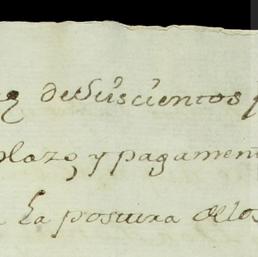 de Suscientos
plazo y pagament
La postura de los